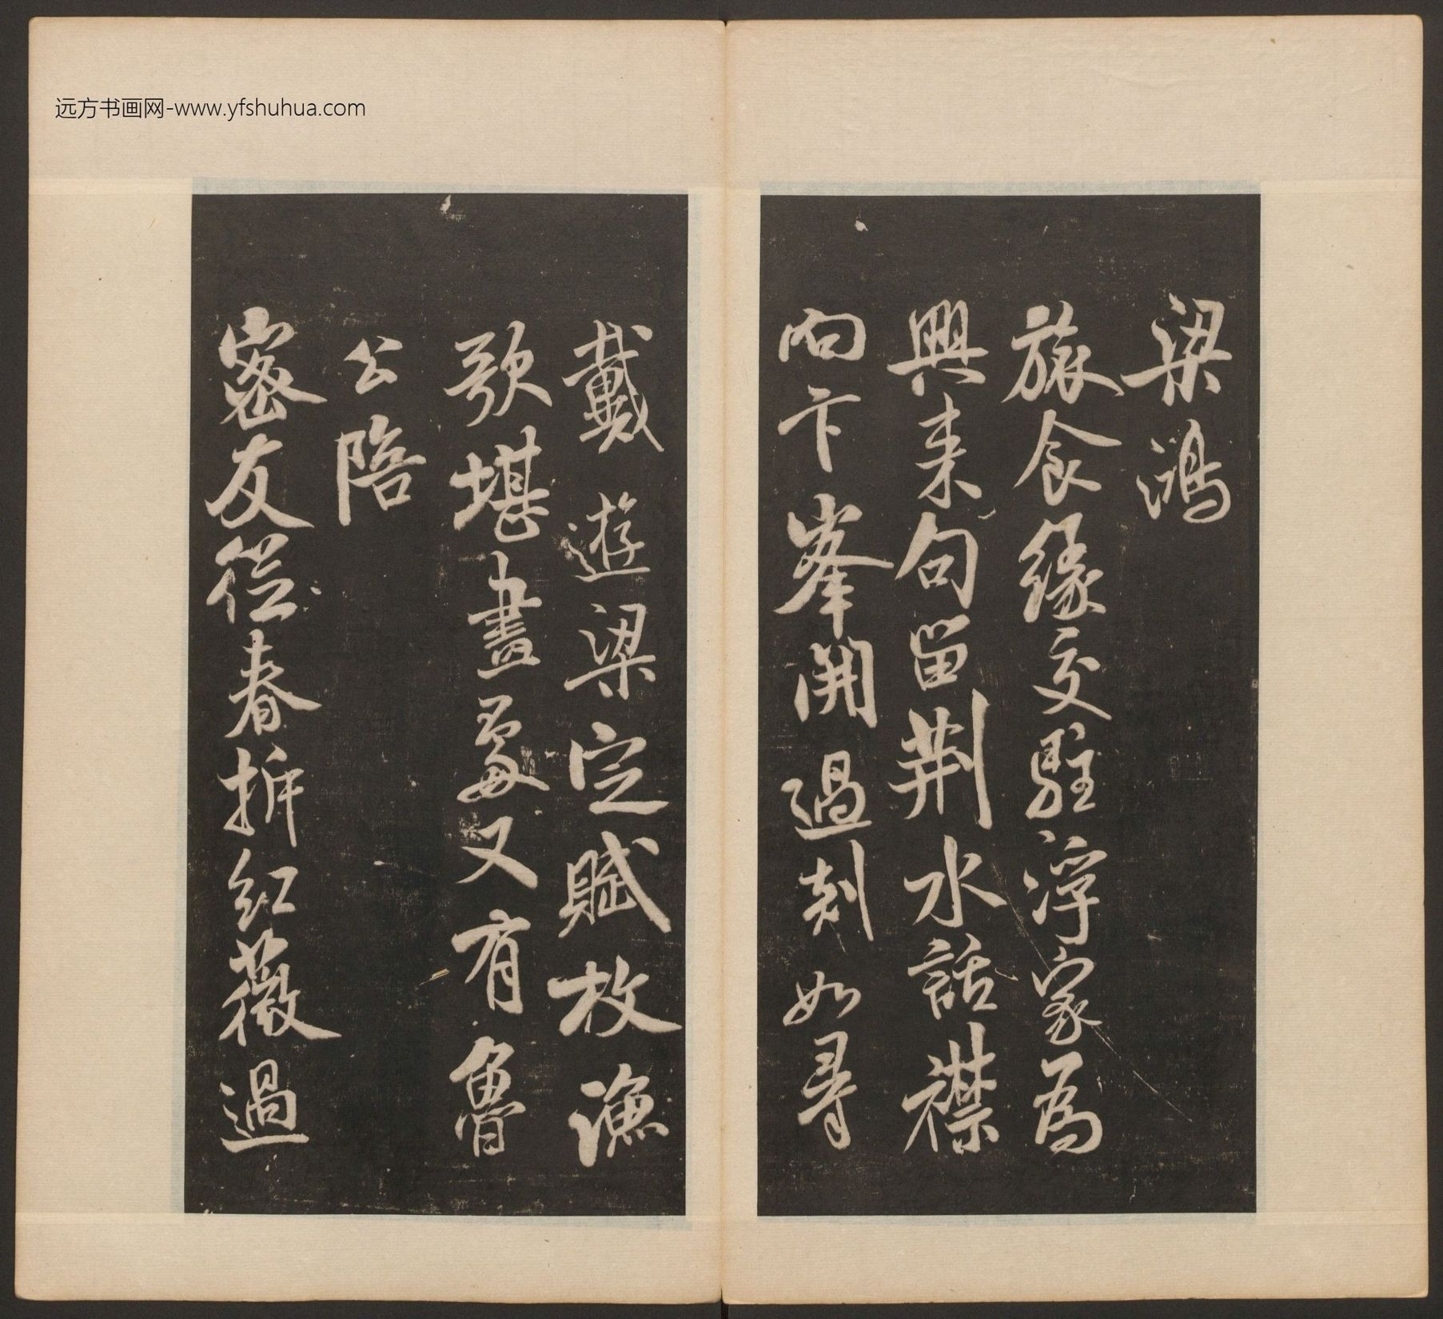 远方书画网-www.yfshuhua.com
梁鴻
旅食緣交駐浮家為
興来句留荆水話襟
向卞峯開過剡如尋
戴遊梁定賦枚漁
歌堪畫處又有魯
公陪
密友從春拆紅薇過